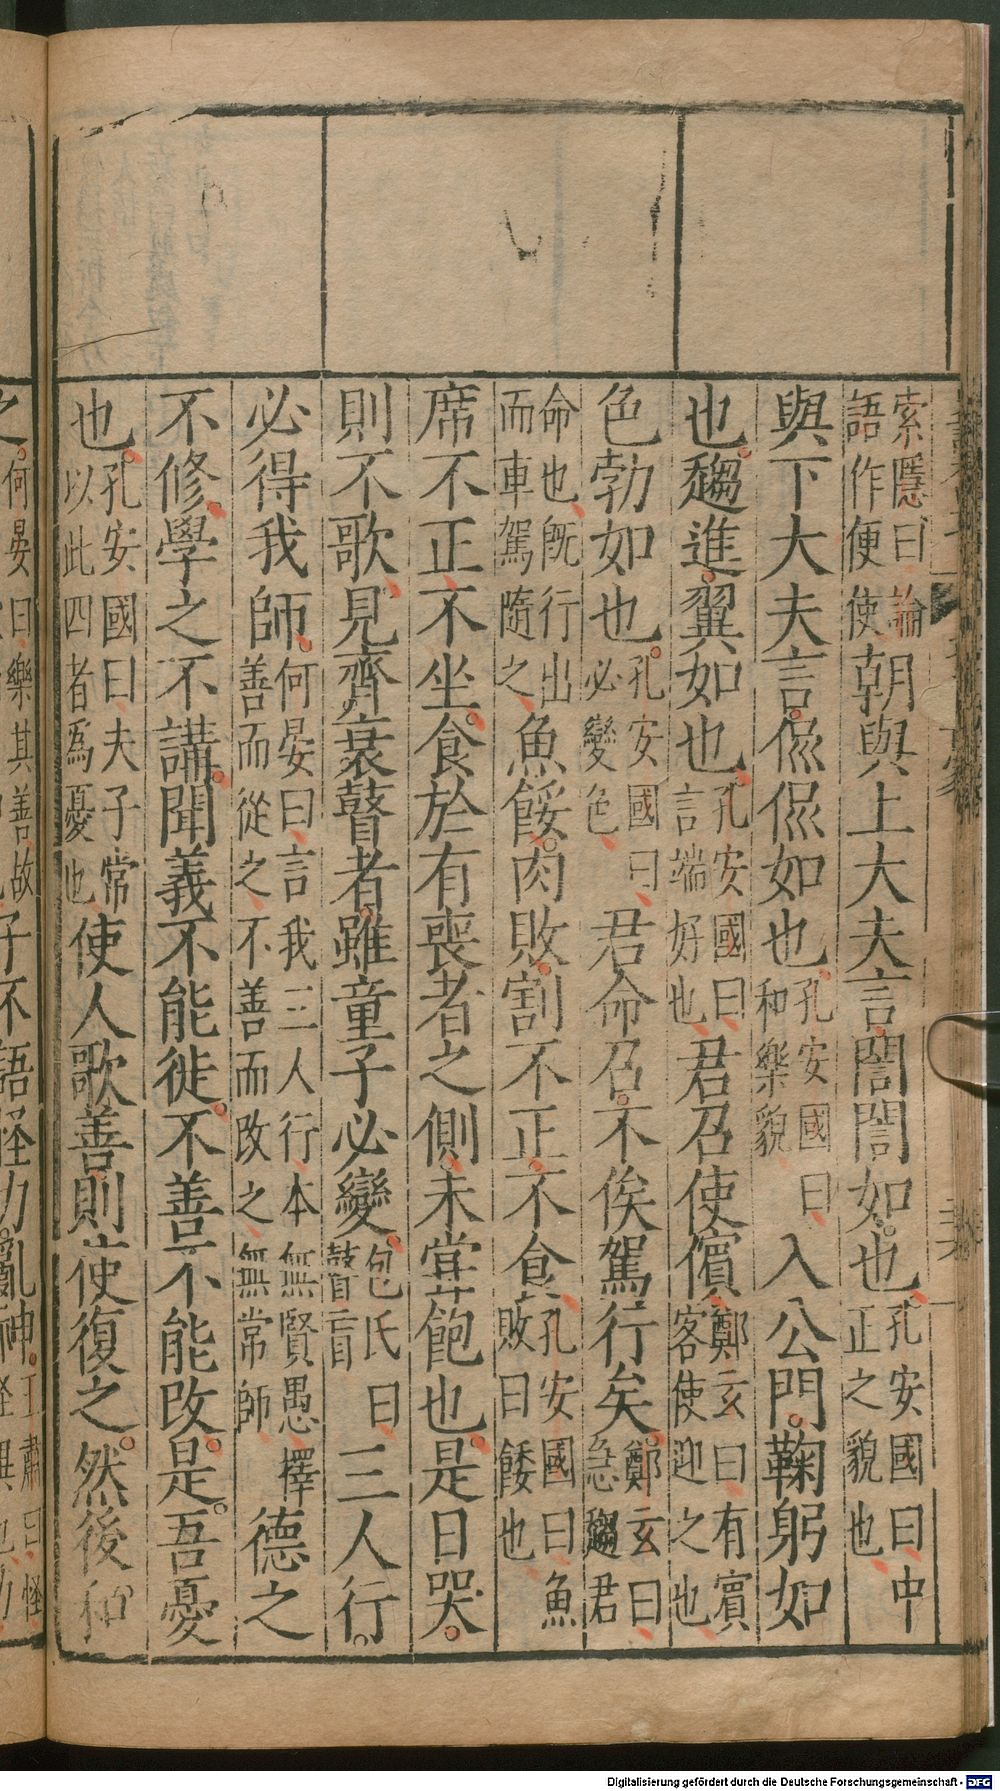 索隱曰論語作便便朝與上大夫言誾誾如也孔安國曰中正之貌也
與下大夫言侃侃如也孔安國曰和樂貌入公門鞠躬如
也趨進翼如也孔安國曰言端好也君召使儐鄭玄曰有賓客使迎之也
色勃如也孔安國曰必變色君命召不俟駕行矣鄭玄曰急趨君
命也既行出而車駕隨之魚餒肉敗割不正不食孔安國曰魚敗曰餒也
席不正不坐食於有喪者之側未嘗飽也是日哭
則不歌見齊衰瞽者雖童子必變包氏曰瞽盲三人行
必得我師何晏曰言我三人行本無賢愚擇善而從之不善而改之無常師德之
不修學之不講聞義不能徙不善不能改是吾憂
也孔安國曰夫子常以此四者爲憂也使人歌善則使復之然後和
之何晏曰樂其善故子不語怪力亂神王肅曰怪
Digitalisierung gefördert durch die Deutsche Forschungsgemeinschaft - DFG